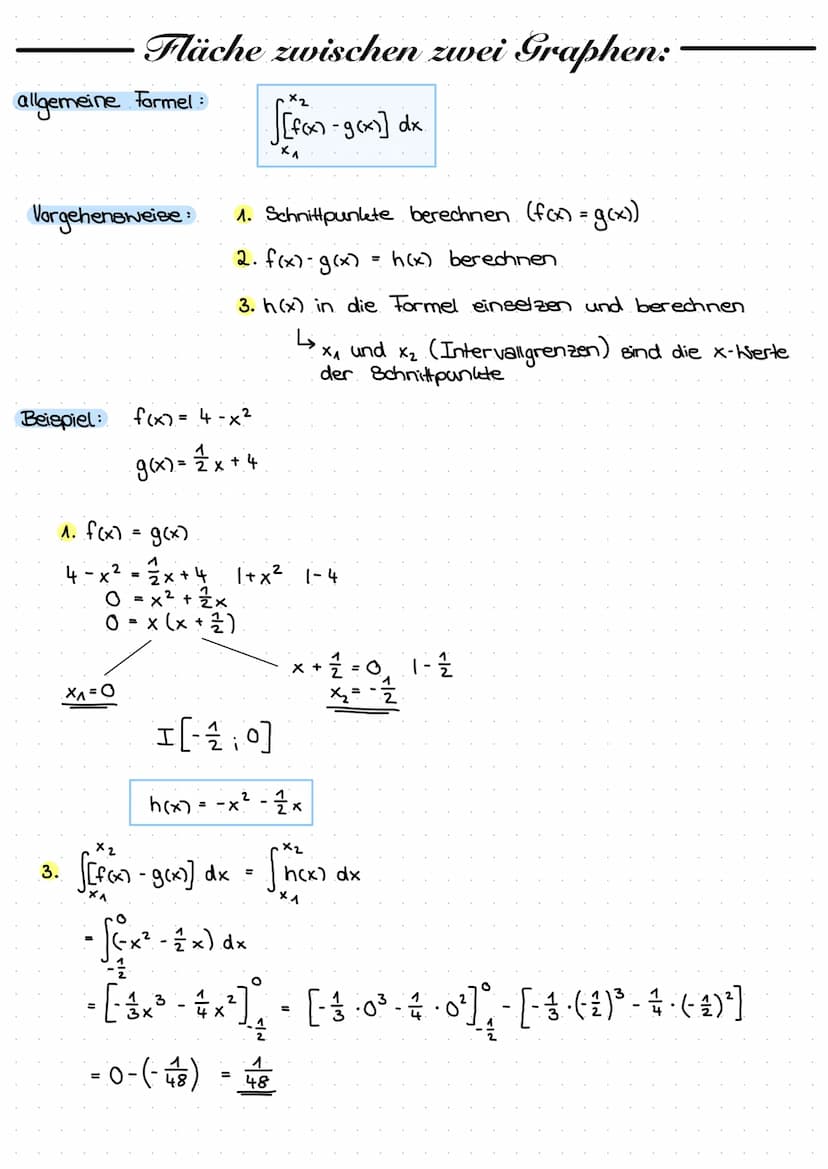 Fläche zwischen zwei Graphen:
allgemeine Formel: ∫_{x₁}^{x₂} [f(x) - g(x)] dx
Vorgehensweise: 1. Schnittpunkte berechnen (f(x) = g(x))
2. f(x) - g(x) = h(x) berechnen
3. h(x) in die Formel einsetzen und berechnen
↳ x₁ und x₂ (Intervallgrenzen) sind die x-Werte
der Schnittpunkte
Beispiel: f(x) = 4 - x²
g(x) = 1/2 x + 4
1. f(x) = g(x)
4 - x² = 1/2 x + 4 | + x² | - 4
0 = x² + 1/2 x
0 = x (x + 1/2)
x + 1/2 = 0 | - 1/2
x₁ = 0 x₂ = - 1/2
I [- 1/2 ; 0]
h(x) = - x² - 1/2 x
3. ∫_{x₁}^{x₂} [f(x) - g(x)] dx = ∫_{x₁}^{x₂} h(x) dx
= ∫_{-1/2}^{0} (-x² - 1/2 x) dx
= [- 1/3 x³ - 1/4 x²]_{-1/2}^{0} = [- 1/3 · 0³ - 1/4 · 0²]_{-1/2}^{0} - [- 1/3 · (- 1/2)³ - 1/4 · (- 1/2)²]
= 0 - (- 1/48) = 1/48